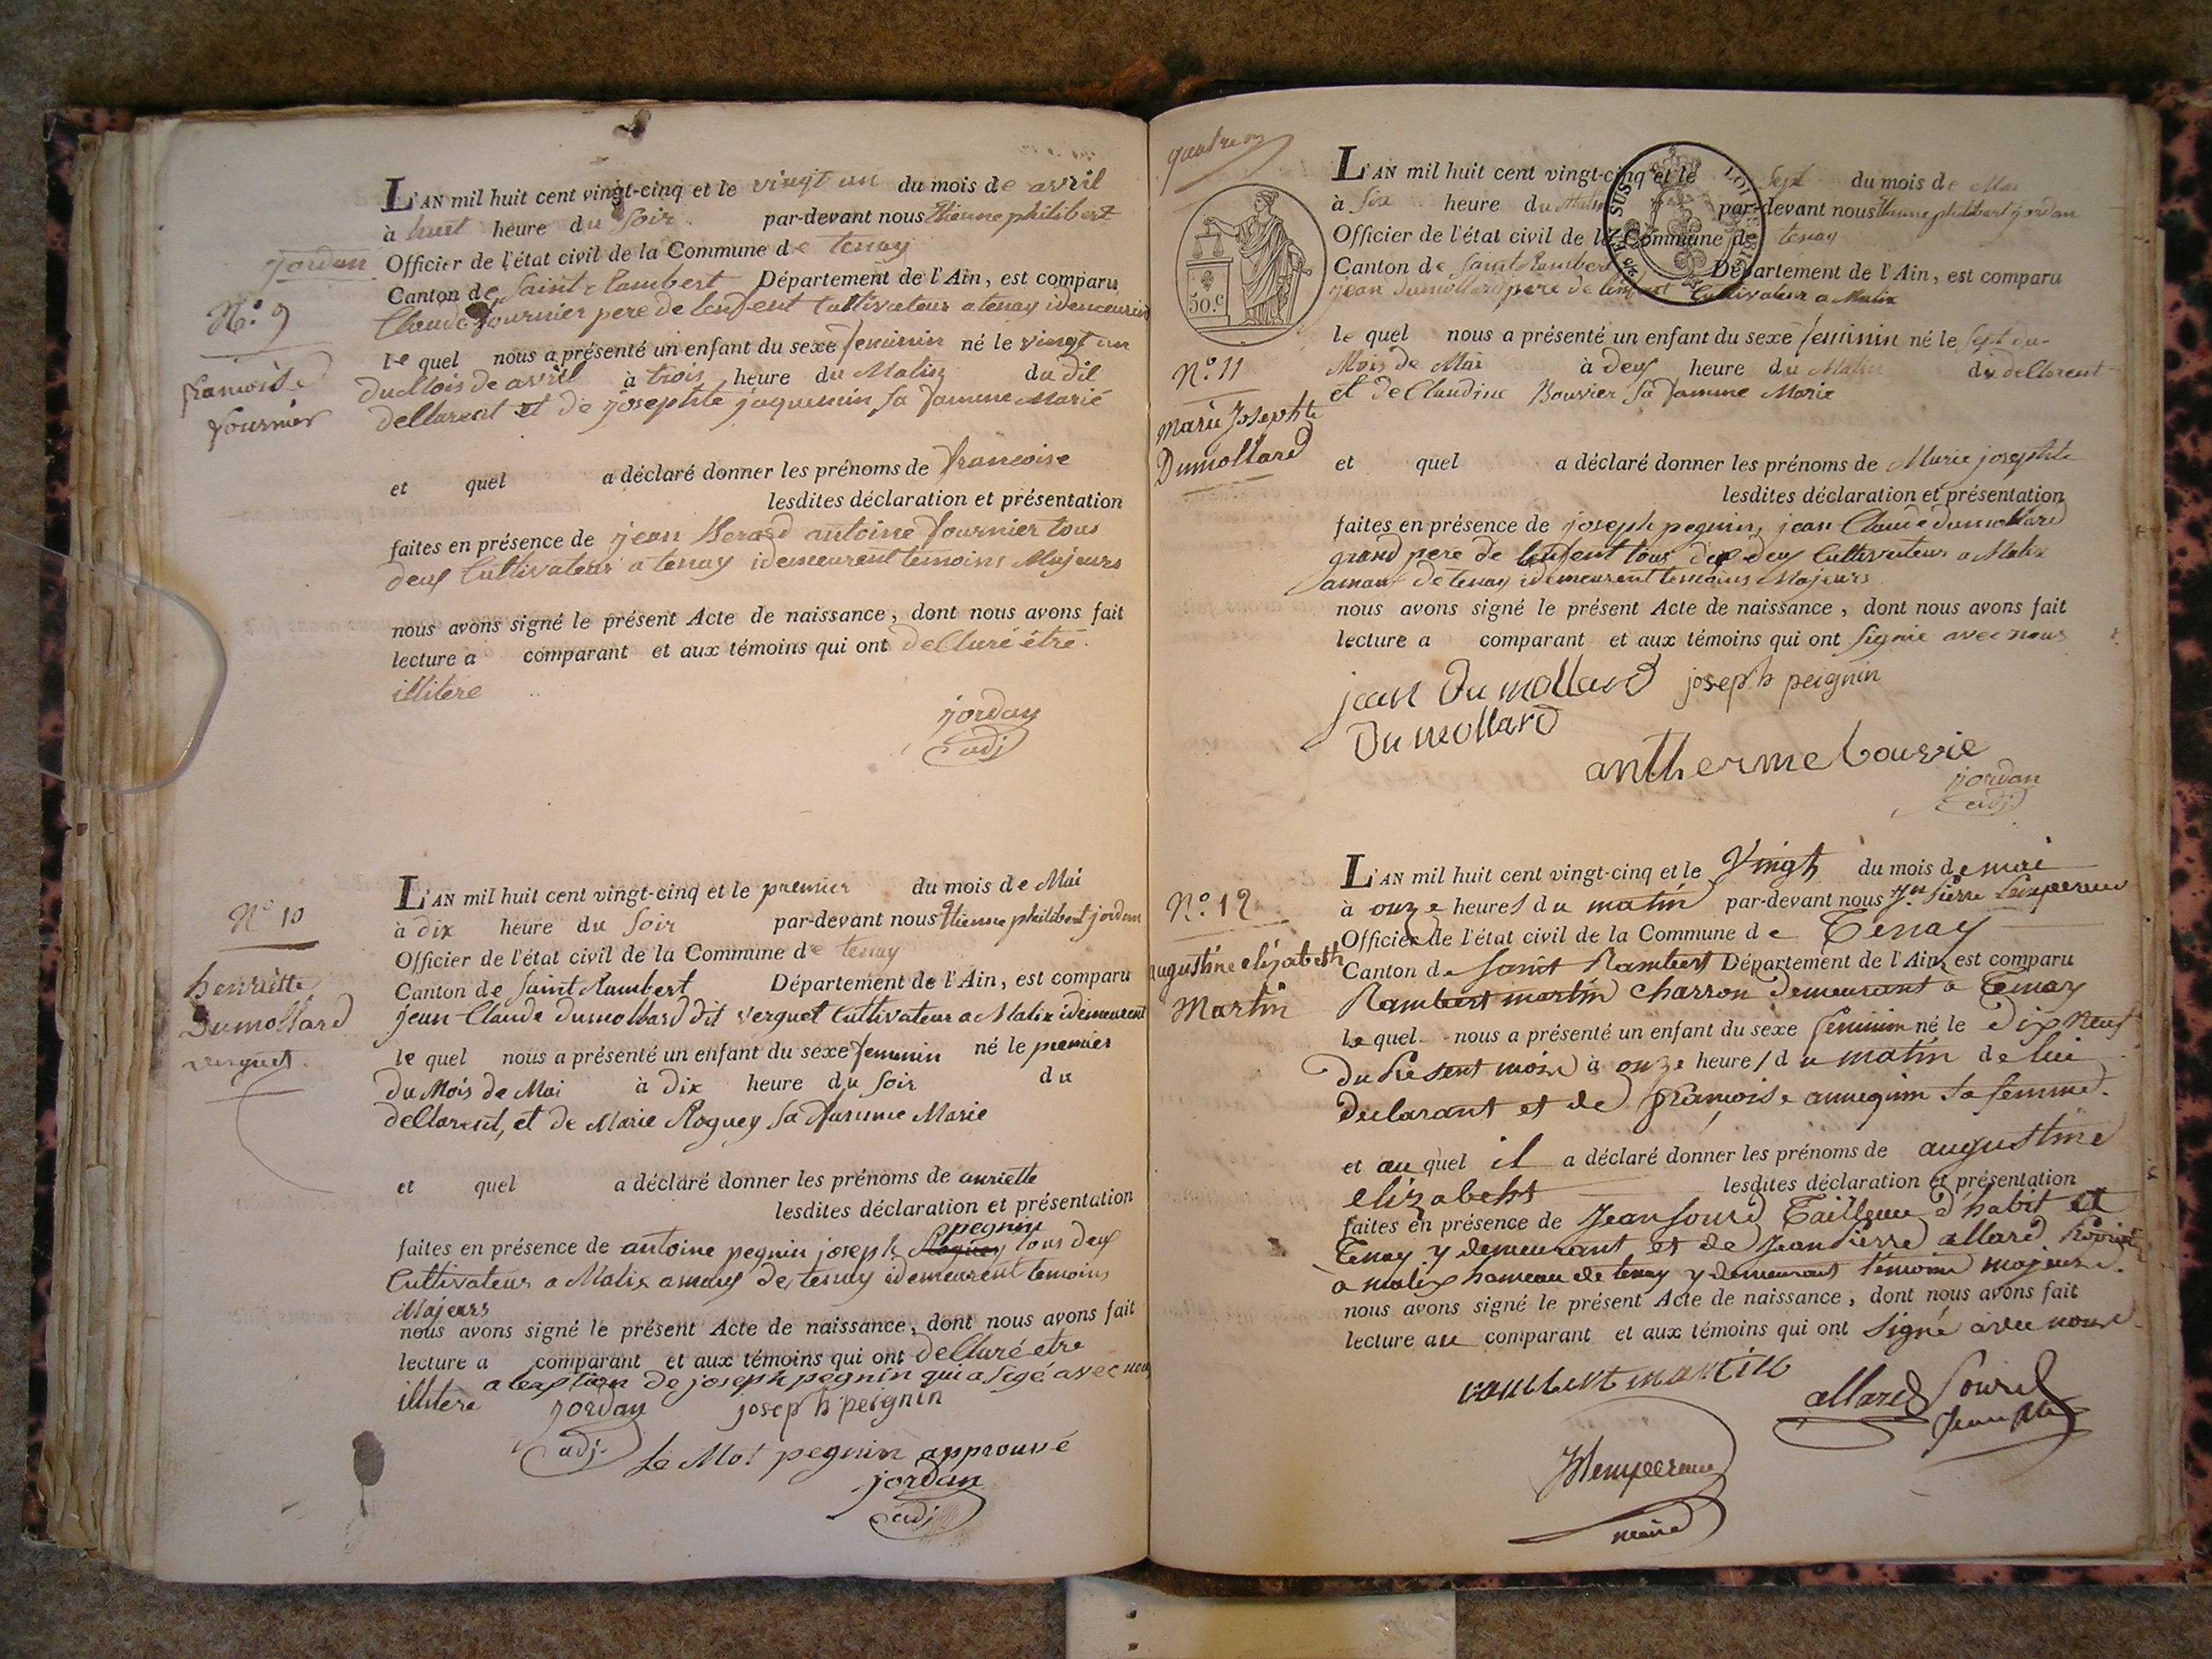 L'AN mil huit cent vingt-cinq et le vingt un du mois de avril
à huit heure du soir par-devant nous Etienne philibert
jordan
Officier de l'état civil de la Commune de tenay
Canton de Saint Rambert Département de l'Ain, est comparu
N.o 9
Claude fournier pere de lenfent Cultivateur a tenay idemeurent
le quel nous a présenté un enfant du sexe feminin né le vingt un
francoise
fournier
du Mois de avril à trois heure du Matin du dit
declarent et de josephte jaquemin sa famme Marié
et quel a déclaré donner les prénoms de francoise
lesdites déclaration et présentation
faites en présence de jean Berard antoine fournier tous
deux Cultivateur a tenay idemeurent temoins Majeurs
nous avons signé le présent Acte de naissance, dont nous avons fait
lecture a comparant et aux témoins qui ont declaré étre
illitere
jordan
adj
N.o 10
henriette
Dumollard
verguet
L'AN mil huit cent vingt-cinq et le premier du mois de Mai
à dix heure du soir par-devant nous Etienne philibert jordan
Officier de l'état civil de la Commune de tenay
Canton de Saint Rambert Département de l'Ain, est comparu
jean Claude dumollard dit verguet Cultivateur a Malix idemeurent
le quel nous a présenté un enfant du sexe feminin né le premier
du Mois de Mai à dix heure du soir du
declarent, et de Marie Roguey sa famme Marie
et quel a déclaré donner les prénoms de anriette
lesdites déclaration et présentation
pegnin
faites en présence de antoine pegnin joseph Roguey tous deux
Cultivateur a Malix amaux de tenay idemeurent temoins
Majeurs
nous avons signé le présent Acte de naissance, dont nous avons fait
lecture a comparant et aux témoins qui ont declaré etre
illitere a lexption de joseph pegnin qui a sigé avec nous
jordan joseph peignin
adj.
Le Mot pegnin approuvé
jordan
adj
50.c
N.o 11
marie Josephte
Dumollard
L'AN mil huit cent vingt-cinq et le Sept du mois de Mai
à six heure du Matin par-devant nous Etienne philibert jordan
Officier de l'état civil de la Commune de tenay
Canton de Saint Rambert Département de l'Ain, est comparu
jean dumollard pere de lenfent Cultivateur a Malix
le quel nous a présenté un enfant du sexe feminin né le sept du
Mois de Mai à deux heure du Matin du declarent
et de Claudine Bouvier sa famme Marie
et quel a déclaré donner les prénoms de Marie josephte
lesdites déclaration et présentation
faites en présence de joseph pegnin, jean Claude dumollard
grand pere de lenfent tous deux Cultivateur a Malix
amaux de tenay idemeurent temoins Majeurs
nous avons signé le présent Acte de naissance, dont nous avons fait
lecture a comparant et aux témoins qui ont signie avec nous
jean Dumollard joseph peignin
Dumollard
antherme bouvie
jordan
adj
N.o 12
augustine elizabeth
Martin
L'AN mil huit cent vingt-cinq et le Vingt du mois de mai
à onze heures du matin par-devant nous Jn Pierre
Officier de l'état civil de la Commune de Tenay
Canton de Saint Rambert Département de l'Ain, est comparu
Rambert martin charron demeurant à Tenay
le quel nous a présenté un enfant du sexe feminin né le dix neuf
du présent mois à onze heures du matin de lui
declarant et de françoise annequin sa femme.
et au quel il a déclaré donner les prénoms de augustine
elizabeht lesdites déclaration et présentation
faites en présence de Jean Sourd Tailleur d'habit et
Tenay y demeurant et de Jean Pierre allard
à malix hameau de tenay y demeurant témoins majeurs.
nous avons signé le présent Acte de naissance, dont nous avons fait
lecture au comparant et aux témoins qui ont signé avec nous.
rambert martin
allard Sourd
maire